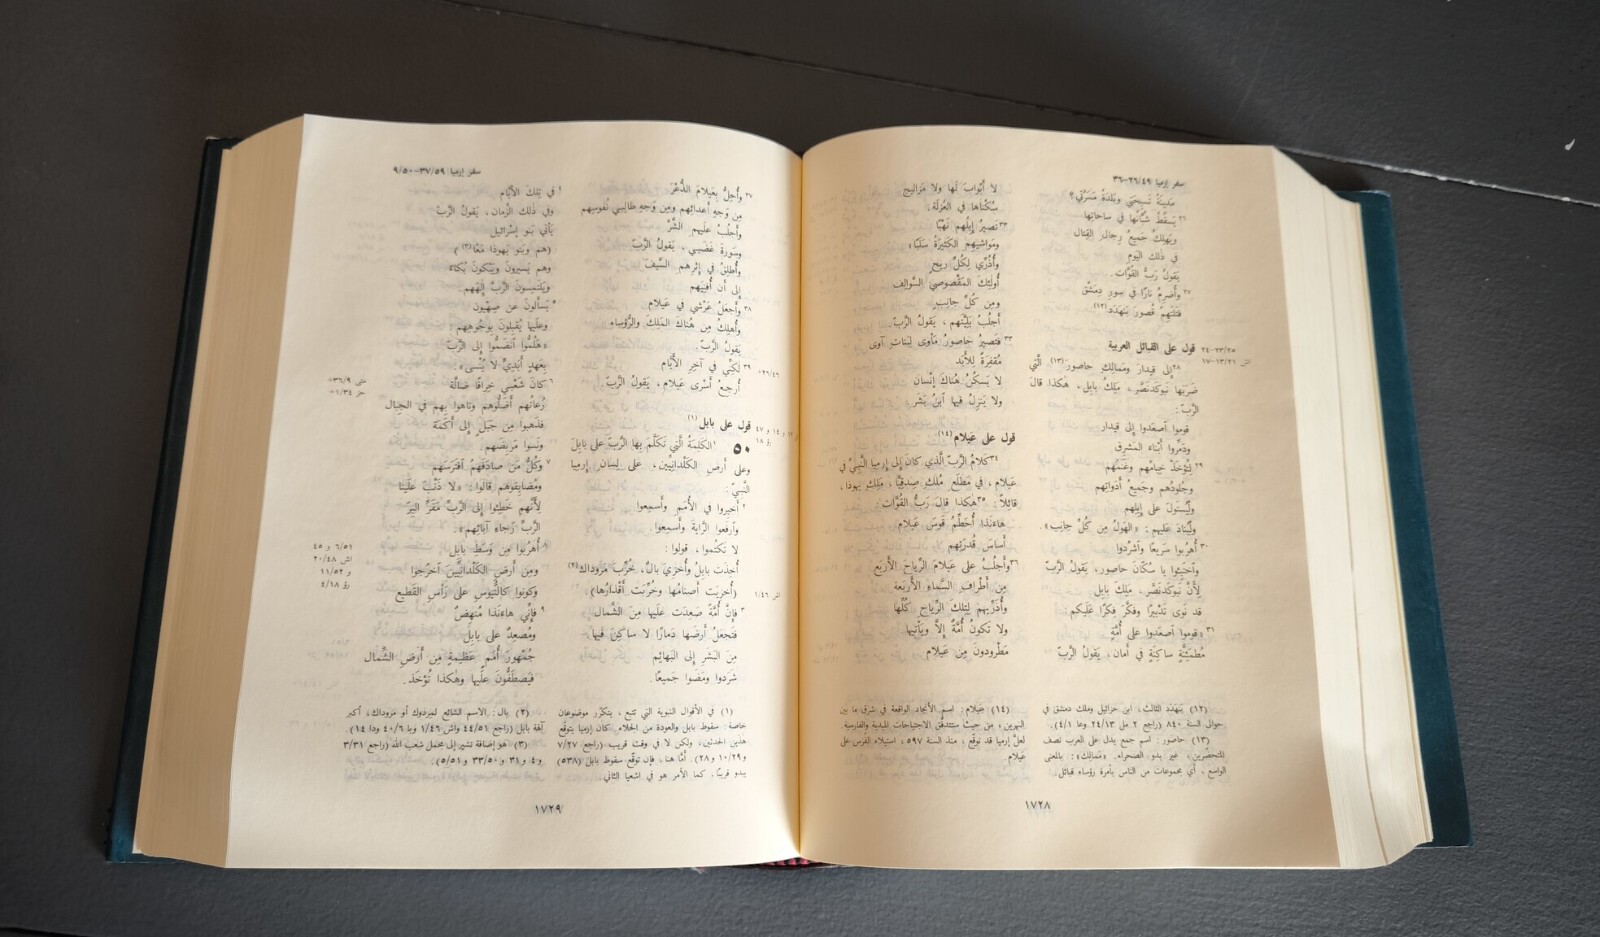 سفر إرميا ٢٦/٤٩-٣٦
مَدينَةُ تَسبِحَتي وبَلدَةُ مَسَرَّتي؟
٢٦ يَسقُطُ شُبَّانُها في ساحاتِها
ويَهلِكُ جَميعُ رِجالِ القِتال
في ذلك اليَوم
يَقولُ رَبُّ القُوَّات.
٢٧ وأُضرِمُ نارًا في سورِ دِمَشْق
فتَلتَهِمُ قُصورَ بَنهَدَد(١٢).
قول على القبائل العربية
٢٣/٢٥-٢٤
اش ١٣/٢١-١٧
٢٨ إِلى قيدارَ ومَمالِكِ حاصور(١٣) الَّتي
ضَرَبَها نَبوكَدنَصَّر، مَلِكُ بابِل، هٰكذا قالَ
الرَّبّ:
قوموا اصعَدوا إِلى قيدار
ودَمِّروا أَبْناءَ المَشرِق
٢٩ لِتُؤخَذْ خِيامُهم وغَنَمُهم
وجُلودُهم وجَميعُ أَدَواتِهم
ولْيُستَولَ على إِبِلِهم
ولْيُنادَ عَلَيهم: «الهَولُ مِن كُلِّ جانِب».
٣٠ أُهرُبوا سَريعًا وآشرُدوا
وآختَبِئوا يا سُكَّانَ حاصور، يَقولُ الرَّبّ
لأَنَّ نَبوكَدنَصَّر، مَلِكَ بابِل
قد نَوى تَدْبيرًا وفَكَّرَ فِكرًا عَلَيكم:
٣١ «قوموا اصعَدوا على أُمَّةٍ
مُطمَئِنَّةٍ ساكِنَةٍ في أَمان، يَقولُ الرَّبّ
لا أَبْوابَ لَها ولا مَزاليج
سُكْناها في العُزلَة.
٣٢ تَصيرُ إِبِلُهم نَهْبًا
ومَواشيهِمِ الكَثيرَةُ سَلَبًا
وأُذَرِّي لِكُلِّ ريح
أُولئِكَ المَقْصوصي السَّوالِف
ومِن كُلِّ جانِبٍ
أَجلُبُ بَلِيَّتَهم، يَقولُ الرَّبّ.
٣٣ فتَصيرُ حاصورُ مَأوى لِبَناتِ آوى
مُقفِرَةً لِلأَبَد
لا يَسكُنُ هُناكَ إِنْسان
ولا يَنزِلُ فيها آبنُ بَشَر.
قول على عيلام(١٤)
٣٤ كَلامُ الرَّبِّ الَّذي كانَ إِلى إِرمِيا النَّبِيِّ في
عَيلام، في مَطلَعِ مُلْكِ صِدقِيَّا، مَلِكِ يَهوذا،
قائلاً: ٣٥ هٰكذا قالَ رَبُّ القُوَّات:
هاءَنَذا أُحَطِّمُ قَوسَ عَيلام
أَساسَ قُدرَتِهم
٣٦ وأَجلُبُ على عَيلامَ الرِّياحَ الأَربَع
مِن أَطْرافِ السَّماءِ الأَربَعة
وأُذَرِّيهم لِتِلكَ الرِّياحِ كُلِّها
ولا تَكونُ أُمَّةٌ إِلاَّ ويَأتيها
مَطْرودونَ مِن عَيلام
(١٢) بنهدد الثالث، ابن حزائيل وملك دمشق في
حوالى السنة ٨٤٠ (راجع ٢ مل ٢٤/١٣ وعا ٤/١).
(١٣) حاصور: اسم جمع يدل على العرب نصف
المتحضّرين، غير بدو الصحراء. «ممالك»: بالمعنى
الواسع، أي مجموعات من الناس بأمرة رؤساء قبائل.
(١٤) عيلام: اسم الأنجاد الواقعة في شرق ما بين
النهرين، من حيث ستتدفّق الاجتياحات الميدية والفارسية
لعلّ إرميا قد توقّع، منذ السنة ٥٩٧، استيلاء الفرس على
عيلام.
١٧٢٨
سفر إرميا ٣٧/٥٩-٩/٥٠
٣٧ وأُحِلُّ بِعَيلامَ الذُّعْرَ
مِن وَجهِ أَعدائِهم ومِن وَجهِ طالِبي نُفوسِهم
وأَجلُبُ علَيهِمِ الشَّرَّ
وسَورَةَ غَضَبي، يَقولُ الرَّبّ
وأُطلِقُ في إِثرِهمِ السَّيفَ
إِلى أَن أُفنِيَهم
٣٨ وأَجعَلُ عَرْشي في عَيلام
وأُهلِكُ مِن هُناكَ المَلِكَ والرُّؤَساء
يَقولُ الرَّبّ.
٣٩ لٰكِنِّي في آخِرِ الأَيَّام
أُرجِعُ أَسْرى عَيلام، يَقولُ الرَّبّ.
٢٦/٤٦+
قول على بابل(١)
٥٠ ١ الكَلِمَةُ الَّتي تَكَلَّمَ بِها الرَّبُّ على بابِلَ
وعلى أَرضِ الكَلْدانِيِّين، على لِسانِ إِرمِيا
النَّبِيّ:
٢ أَخبِروا في الأُمَمِ وأَسمِعوا
وآرفَعوا الرَّايَةَ وأَسمِعوا
لا تَكتُموا، قولوا:
أُخِذَت بابِلُ وأُخزِيَ بال، خُرِّبَ مَروداك(٢)
(أُخزِيَت أَصْنامُها وخُرِّبَت أَقْذارُها).
اش ١/٤٦
٣ فإِنَّ أُمَّةً صَعِدَت علَيها مِنَ الشَّمال
فتَجعَلُ أَرضَها دَمارًا لا ساكِنَ فيها.
مِنَ البَشَرِ إِلى البَهائِم
شَرَدوا ومَضَوا جَميعًا.
٤ في تِلكَ الأَيَّام
وفي ذٰلك الزَّمان، يَقولُ الرَّبّ
يَأتي بَنو إِسْرائيل
(هم وبَنو يَهوذا مَعًا)(٣)
وهم يَسيرونَ ويَبْكونَ بُكاءً
ويَلتَمِسونَ الرَّبَّ إِلٰهَهم.
٥ يَسأَلونَ عن صِهْيون
وعلَيها يُقبِلونَ بِوُجوهِهم:
«هَلُمُّوا آنضَمُّوا إِلى الرَّبِّ
بِعَهدٍ أَبَدِيٍّ لا يُنْسى».
٦ كانَ شَعْبي خِرافًا ضالَّة
متى ٣٦/٩+
حز ١/٣٤+
رُعاتُهم أَضَلُّوهم وتاهوا بِهم في الجِبال
فذَهَبوا مِن جَبَلٍ إِلى أَكَمَة
ونَسوا مَربِضَهم.
٧ وكُلُّ مَن صادَفَهمُ آفتَرَسَهم
ومُضايِقوهم قالوا: «لا ذَنْبَ علَينا
لأَنَّهم خَطِئوا إِلى الرَّبِّ مَقَرِّ البِرّ
الرَّبِّ رَجاءِ آبائِهم».
٨ أُهرُبوا مِن وَسَطِ بابِل
ومِن أَرضِ الكَلْدانِيِّينَ آخرُجوا
٦/٥١ و ٤٥
اش ٢٠/٤٨
و ١١/٥٢
رؤ ٤/١٨
وكونوا كالتُّيوسِ على رَأسِ القَطيع
٩ فإِنِّي هاءَنَذا مُنهِضٌ
ومُصعِدٌ على بابِلَ
جُمْهورَ أُمَمٍ عَظيمَةٍ مِن أَرضِ الشِّمال
فيَصطَفُّونَ علَيها وهٰكذا تُؤخَذ.
(١) في الأقوال النبوية التي تتبع، يتكرّر موضوعان
خاصة: سقوط بابل والعودة من الجلاء. كان إرميا يتوقّع
هذين الحدثين، ولكن لا في وقت قريب (راجع ٧/٢٧
و ١٠/٢٩ و ٢٨). أمّا هنا، فإن توقّع سقوط بابل (٥٣٨)
يبدو قريبًا، كما الأمر هو في اشعيا الثاني.
(٢) بال: الاسم الشائع لمردوك أو مروداك، أكبر
آلهة بابل (راجع ٤٤/٥١ واش ١/٤٦ وبا ٤٠/٦ ودا ١٤).
(٣) هو إضافة تشير إلى مجمل شعب الله (راجع ٣١/٣
و ٤ و ٣١ و ٣٣/٥٠ و ٥/٥١).
١٧٢٩